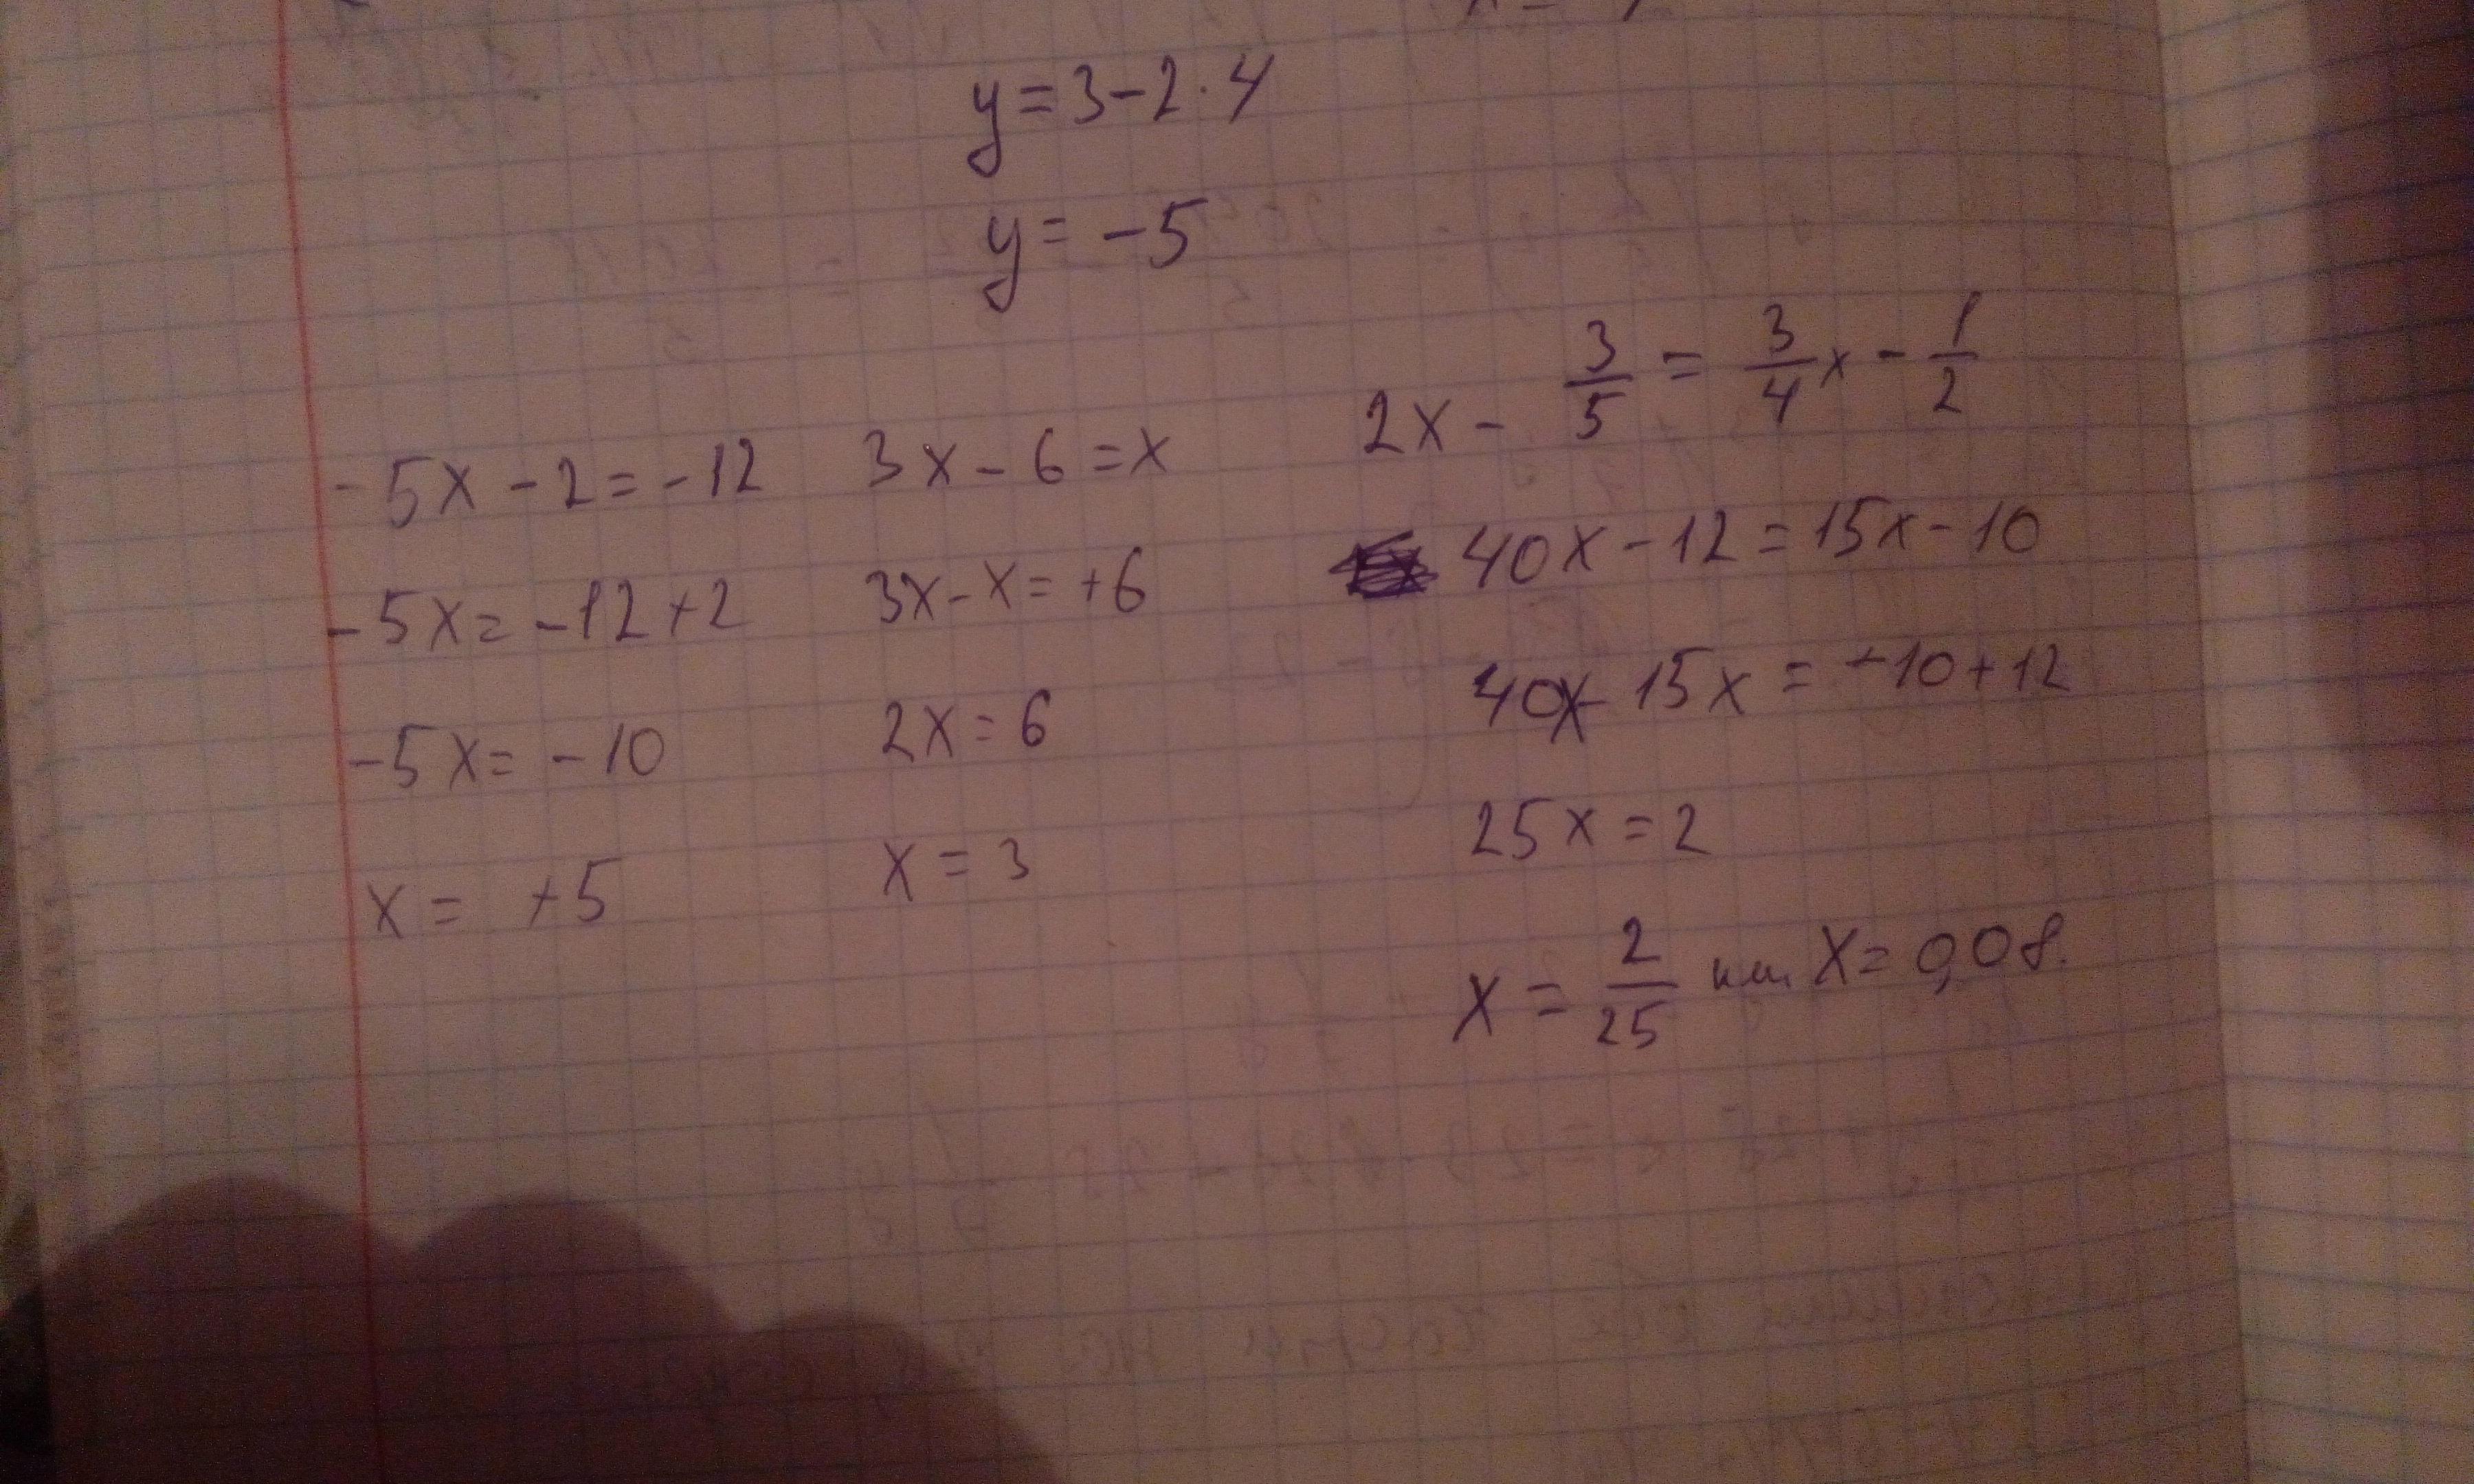 y = 3 - 2 · 4
y = -5
-5x - 2 = -12
-5x = -12 + 2
-5x = -10
x = +5
3x - 6 = x
3x - x = +6
2x = 6
x = 3
2x - 3/5 = 3/4 x - 1/2
40x - 12 = 15x - 10
40x - 15x = -10 + 12
25x = 2
x = 2/25 или x = 0,08.